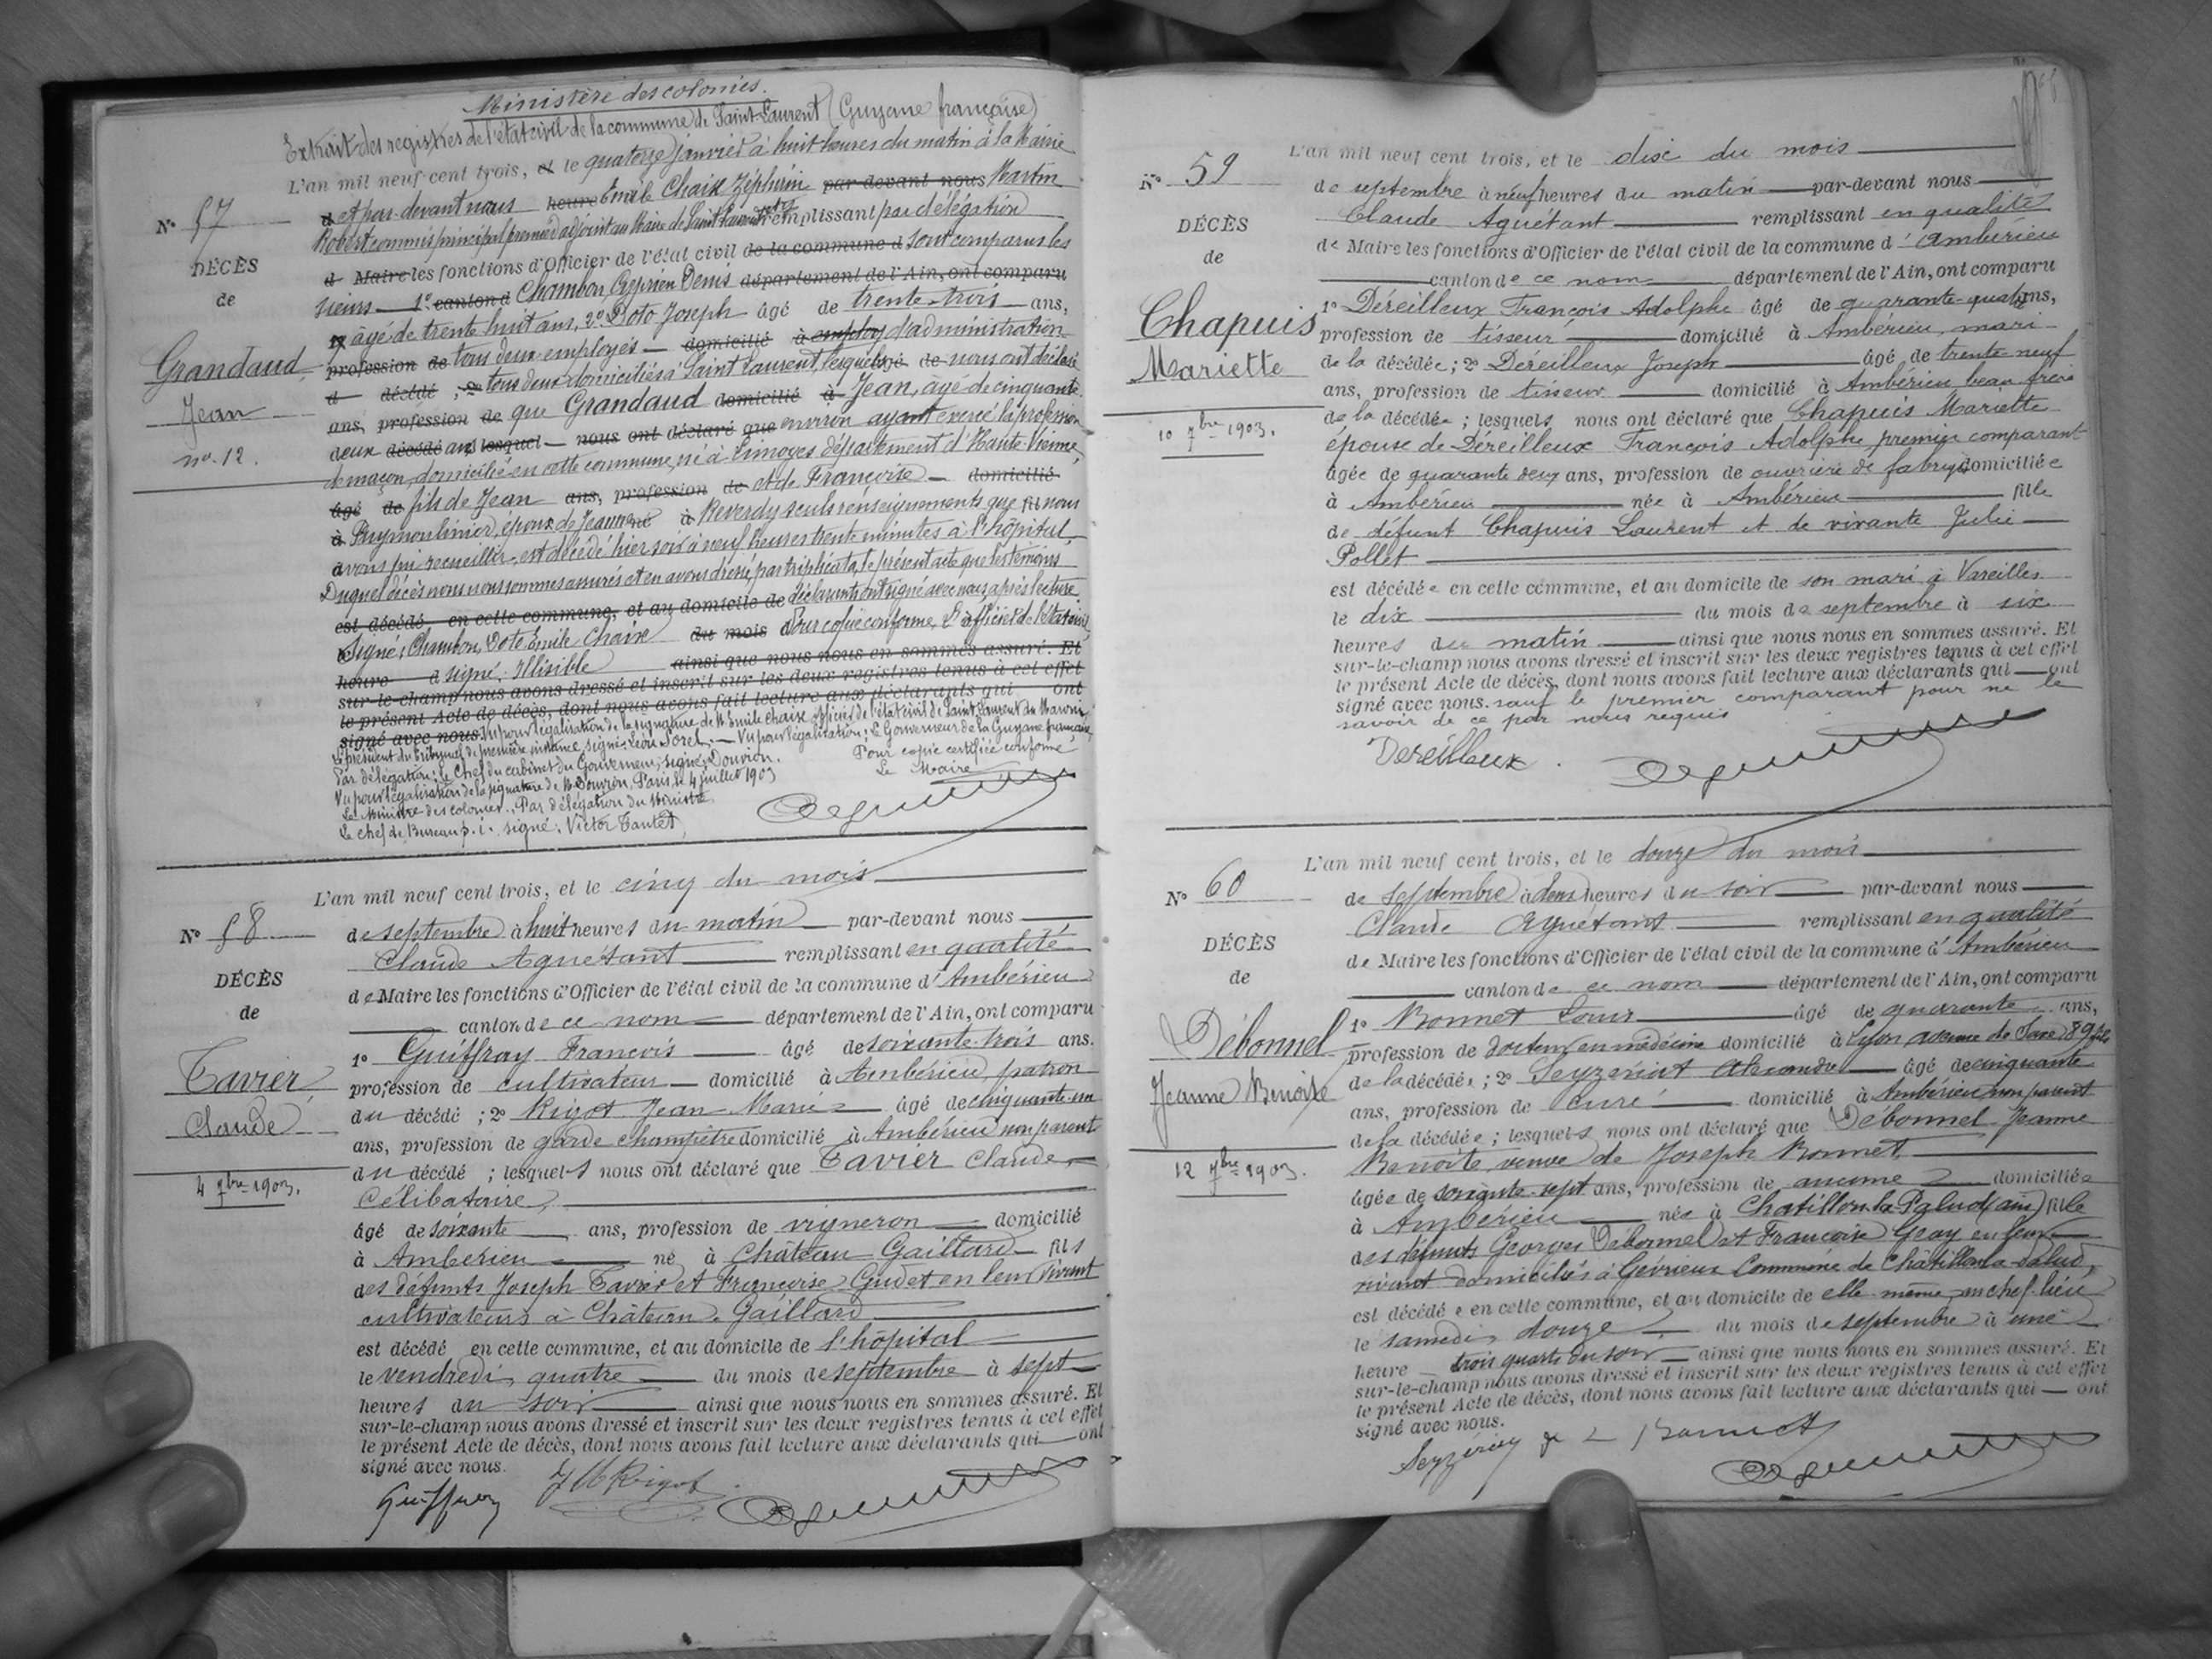 Ministère des colonies.
Extrait des registres de l'état civil de la commune de Saint-Laurent (Guyane française)
L'an mil neuf cent trois, et le quatorze janvier à huit heures du matin à la Mairie
N° 57
et par-devant nous heure Emile Chaix Zéphirin par-devant nous Martin
Robert commis principal premier adjoint au Maire de Saint-Laurent remplissant par délégation
DÉCÈS
d Maire les fonctions d'Officier de l'état civil de la commune d sont comparus les
de
sieurs 1° canton d Chambon Cyprien Denis département de l'Ain, ont comparu
1° âgé de trente huit ans, 2° Doto Joseph âgé de trente-trois ans,
Grandaud
profession de tous deux employés domicilié à d'administration
Jean
d décédé, 2° tous deux domiciliés à Saint Laurent, lesquels âgé de nous ont déclaré
ans, profession de que Grandaud domicilié à Jean, âgé de cinquante
no. 12.
deux décédé ans lesquel nous ont déclaré que environ ayant exercé la profession
de maçon, domicilié en cette commune, né à Limoges département d' Haute-Vienne,
âgé de fils de Jean ans, profession de et de Françoise domicilié
à Puymoulinier, époux de Jeanne né à Reverdy seuls renseignements que fil nous
avons pu recueillir, est décédé hier soir à neuf heures trente minutes à l'hôpital.
Duquel décès nous nous sommes assurés et en avons dressé, par triplicata, le présent acte que les témoins
est décédé en cette commune, et au domicile de déclarants ont signé avec nous, après lecture.
Signé: Chambon, Doto Emile Chaix du mois Pour copie conforme, L'officier de l'état civil,
heure a signé: Illisible ainsi que nous nous en sommes assuré. Et
sur-le-champ nous avons dressé et inscrit sur les deux registres tenus à cet effet
le présent Acte de décès, dont nous avons fait lecture aux déclarants qui ont
signé avec nous. Vu pour légalisation de la signature de M. Emile Chaix officier de l'état civil de Saint Laurent du Maroni,
Le président du tribunal de première instance, signé: Léon Sorel. — Vu pour légalisation: Le Gouverneur de la Guyane française,
Par délégation: le Chef du cabinet du Gouverneur, signé: Douvion.
Pour copie certifiée conforme
Vu pour légalisation de la signature de M. Douvion, Paris, le 4 juillet 1903
Le Maire
Le Ministre des colonies, Par délégation du Ministre
Le chef de Bureau p. i. signé: Victor Tantet
L'an mil neuf cent trois, et le cinq du mois
N° 58
de septembre à huit heures du matin par-devant nous
Claude Aguétant remplissant en qualité
DÉCÈS
de Maire les fonctions d'Officier de l'état civil de la commune d'Ambérieu
de
canton de ce nom département de l'Ain, ont comparu
1° Guiffray François âgé de soixante-trois ans.
Tavier
profession de cultivateur domicilié à Ambérieu, patron
du décédé ; 2° Rigot Jean-Marie âgé de cinquante-un
Claude
ans, profession de garde champêtre domicilié à Ambérieu non parent
du décédé ; lesquels nous ont déclaré que Tavier Claude,
4 7bre 1903.
célibataire,
âgé de soixante ans, profession de vigneron domicilié
à Ambérieu né à Château-Gaillard fils
des défunts Joseph Tavier et Françoise Gudet en leur vivant
cultivateurs à Château-Gaillard
est décédé en cette commune, et au domicile de l'hôpital
le vendredi quatre du mois de septembre à sept
heures du soir ainsi que nous nous en sommes assuré. Et
sur-le-champ nous avons dressé et inscrit sur les deux registres tenus à cet effet
le présent Acte de décès, dont nous avons fait lecture aux déclarants qui ont
signé avec nous.
Guiffray JM Rigot
L'an mil neuf cent trois, et le dix du mois
N° 59
de septembre à neuf heures du matin par-devant nous
Claude Aguétant remplissant en qualité
DÉCÈS
de Maire les fonctions d'Officier de l'état civil de la commune d'Ambérieu
de
canton de ce nom département de l'Ain, ont comparu
1° Déreilleux François Adolphe âgé de quarante-quatre ans,
Chapuis
profession de tisseur domicilié à Ambérieu, mari
Mariette
de la décédée ; 2° Déreilleux Joseph âgé de trente-neuf
ans, profession de tisseur domicilié à Ambérieu beau frère
10 7bre 1903.
de la décédée ; lesquels nous ont déclaré que Chapuis Mariette
épouse de Déreilleux François Adolphe premier comparant
âgée de quarante deux ans, profession de ouvrière de fabrique domiciliée
à Ambérieu née à Ambérieu fille
de défunt Chapuis Laurent et de vivante Julie
Pollet
est décédée en cette commune, et au domicile de son mari à Vareilles
le dix du mois de septembre à six
heures du matin ainsi que nous nous en sommes assuré. Et
sur-le-champ nous avons dressé et inscrit sur les deux registres tenus à cet effet
le présent Acte de décès, dont nous avons fait lecture aux déclarants qui ont
signé avec nous. sauf le premier comparant pour ne le
savoir de ce par nous requis
Dereilleux
L'an mil neuf cent trois, et le douze du mois
N° 60
de septembre à deux heures du soir par-devant nous
Claude Aguétant remplissant en qualité
DÉCÈS
de Maire les fonctions d'Officier de l'état civil de la commune d'Ambérieu
de
canton de ce nom département de l'Ain, ont comparu
1° Bonnet Louis âgé de quarante ans,
Débonnel
profession de docteur en médecine domicilié à Lyon avenue de Saxe 89 fils
Jeanne Benoite
de la décédée ; 2° Seyzeriat Alexandre âgé de cinquante
ans, profession de curé domicilié à Ambérieu non parent
de la décédée ; lesquels nous ont déclaré que Débonnel Jeanne
12 7bre 1903.
Benoite, veuve de Joseph Bonnet
âgée de soixante-sept ans, profession de aucune domiciliée
à Ambérieu née à Chatillon-la-Palud (ain) fille
des défunts Georges Débonnel et Françoise Geay en leur
vivant domiciliés à Gévrieux Commune de Châtillon-la-Palud,
est décédée en cette commune, et au domicile de elle-même, au chef-lieu
le samedi douze du mois de septembre à une
heure trois quarts du soir ainsi que nous nous en sommes assuré. Et
sur-le-champ nous avons dressé et inscrit sur les deux registres tenus à cet effet
le présent Acte de décès, dont nous avons fait lecture aux déclarants qui ont
signé avec nous.
L Bonnet